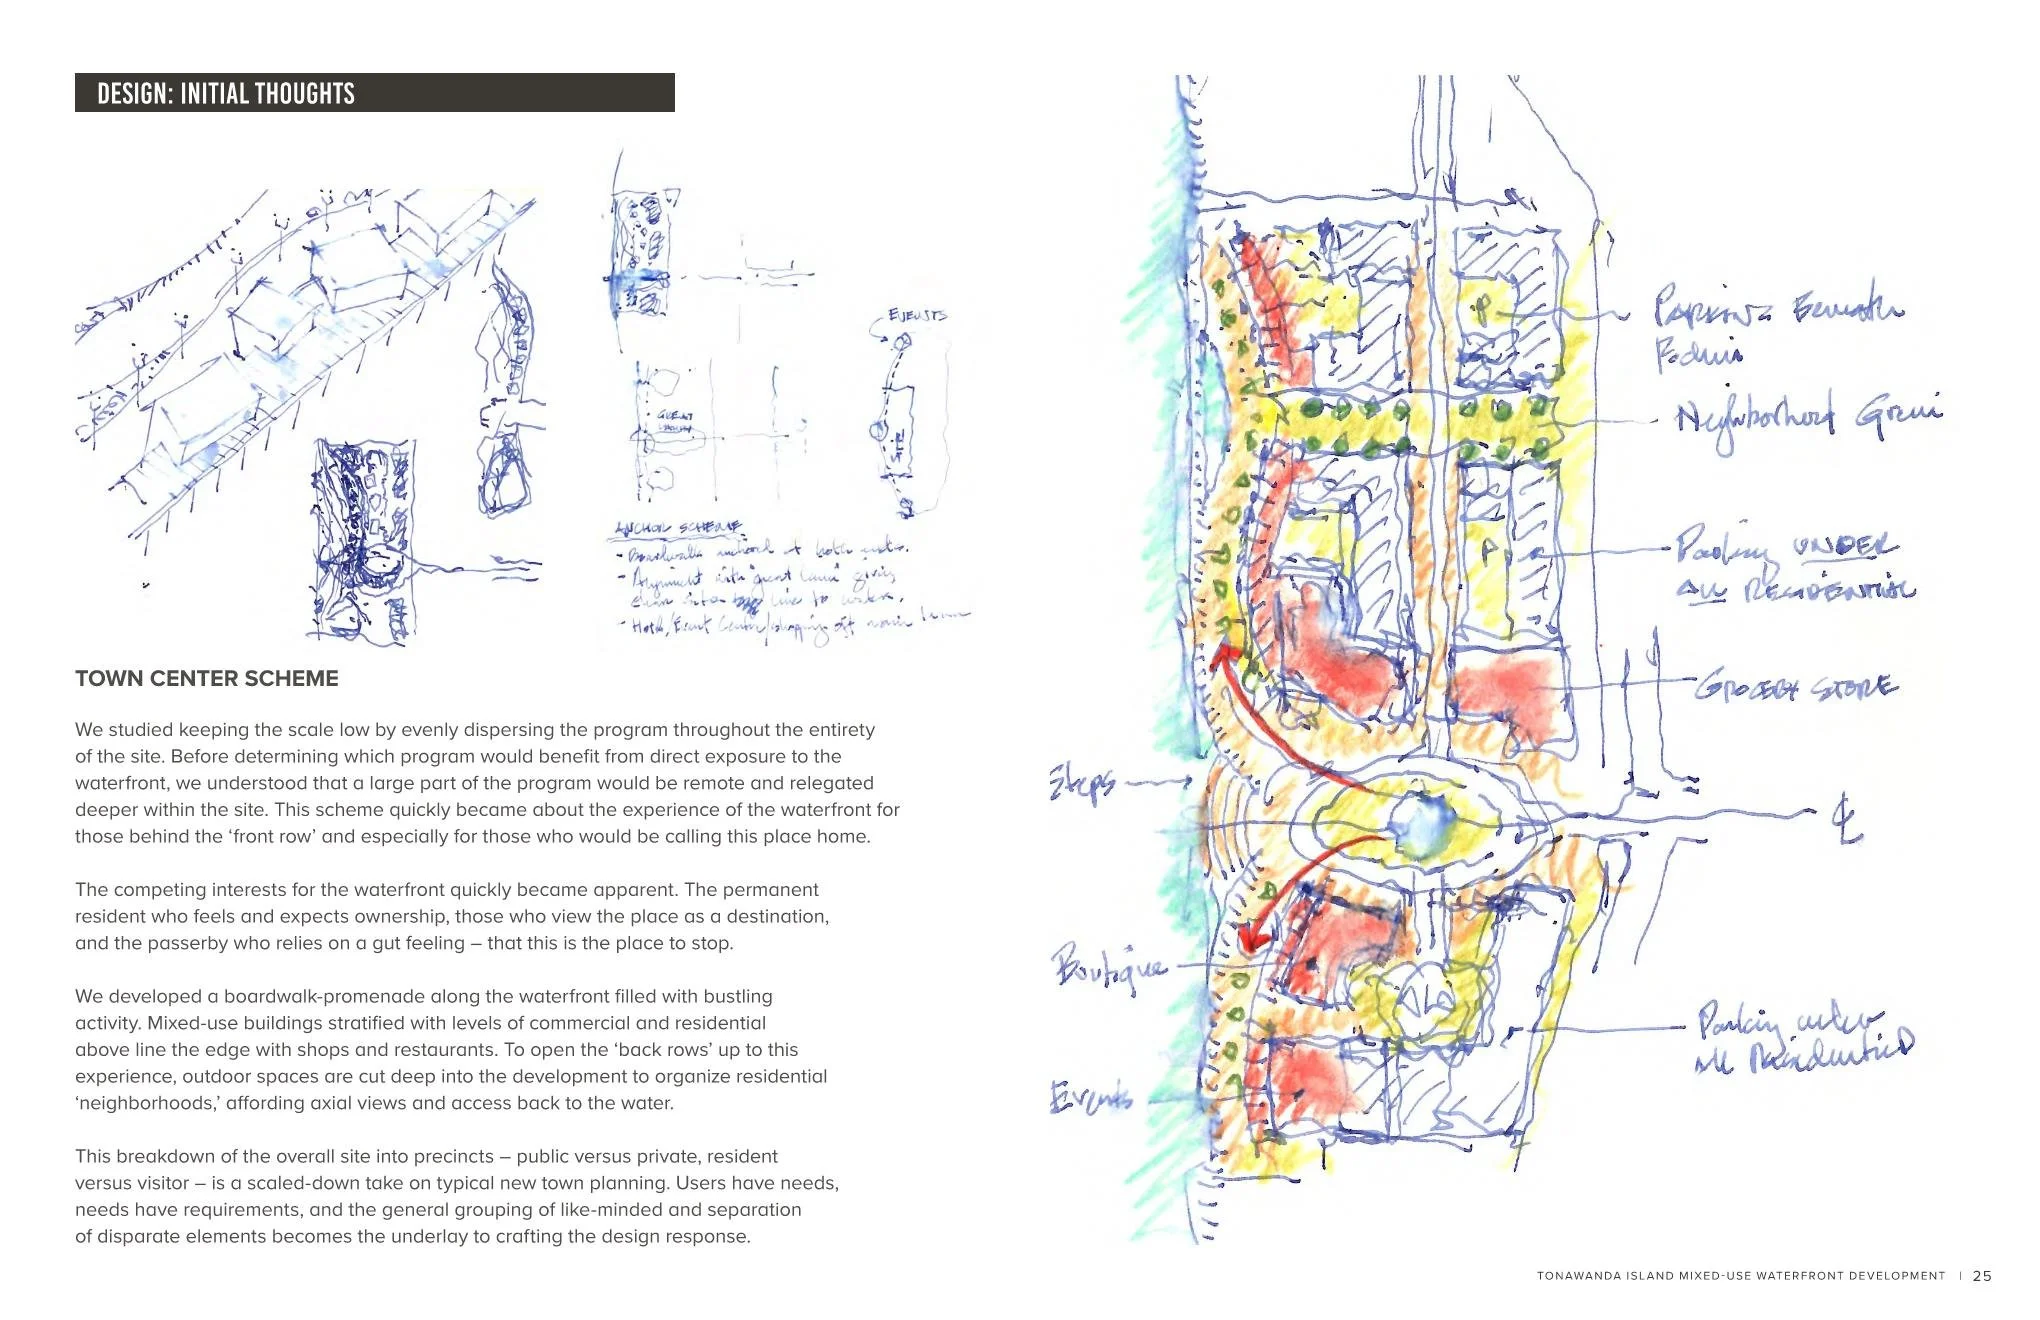 DESIGN: INITIAL THOUGHTS
EVENTS
GREAT
LAWN
SITE
ANCHOR SCHEME
- Boardwalk anchored at both ends.
- Alignment with "great lawn" giving
to water.
- Hotel/Event Center/shopping off main lawn
TOWN CENTER SCHEME
We studied keeping the scale low by evenly dispersing the program throughout the entirety
of the site. Before determining which program would benefit from direct exposure to the
waterfront, we understood that a large part of the program would be remote and relegated
deeper within the site. This scheme quickly became about the experience of the waterfront for
those behind the ‘front row’ and especially for those who would be calling this place home.
The competing interests for the waterfront quickly became apparent. The permanent
resident who feels and expects ownership, those who view the place as a destination,
and the passerby who relies on a gut feeling – that this is the place to stop.
We developed a boardwalk-promenade along the waterfront filled with bustling
activity. Mixed-use buildings stratified with levels of commercial and residential
above line the edge with shops and restaurants. To open the ‘back rows’ up to this
experience, outdoor spaces are cut deep into the development to organize residential
‘neighborhoods,’ affording axial views and access back to the water.
This breakdown of the overall site into precincts – public versus private, resident
versus visitor – is a scaled-down take on typical new town planning. Users have needs,
needs have requirements, and the general grouping of like-minded and separation
of disparate elements becomes the underlay to crafting the design response.
P
Parking Beneath
Podium
Neighborhood Green
P
Parking UNDER
ALL RESIDENTIAL
GROCERY STORE
Steps
℄
Boutique
Parking under
all Residential
Events
TONAWANDA ISLAND MIXED-USE WATERFRONT DEVELOPMENT | 25